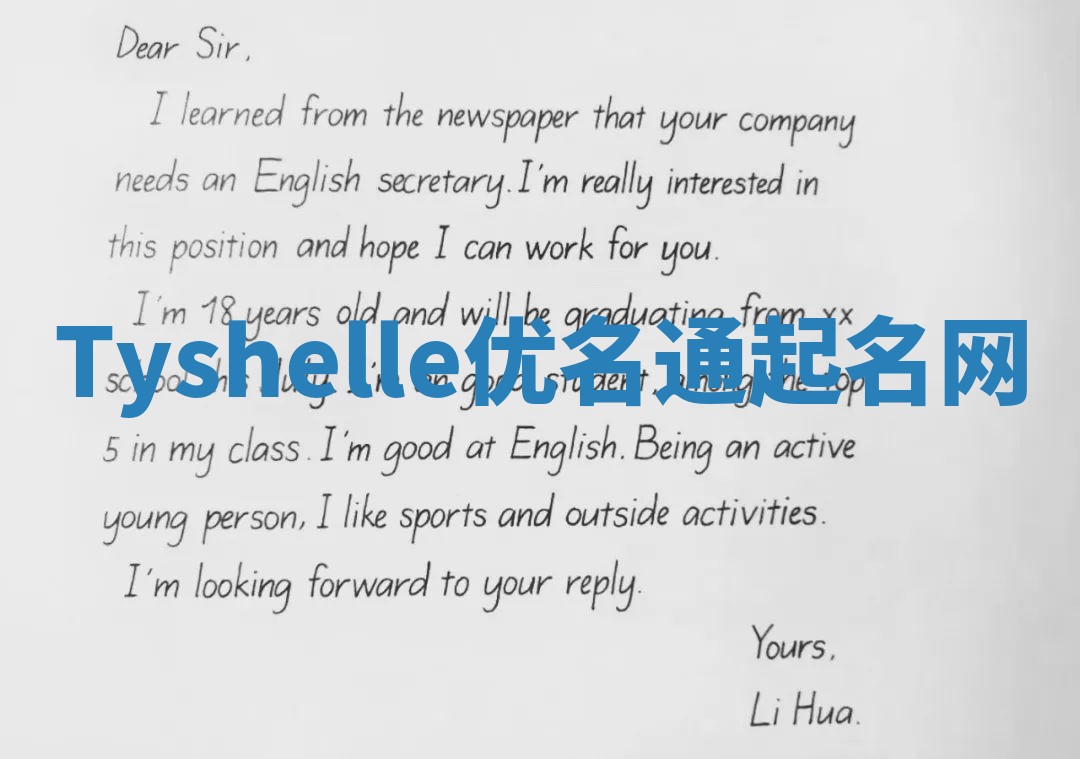 Dear Sir,
I learned from the newspaper that your company
needs an English secretary. I'm really interested in
this position and hope I can work for you.
I'm 18 years old and will be graduating from xx
Tyshelle优名通起名网
school this July. I'm an good student, among the top
5 in my class. I'm good at English. Being an active
young person, I like sports and outside activities.
I'm looking forward to your reply.
Yours,
Li Hua.